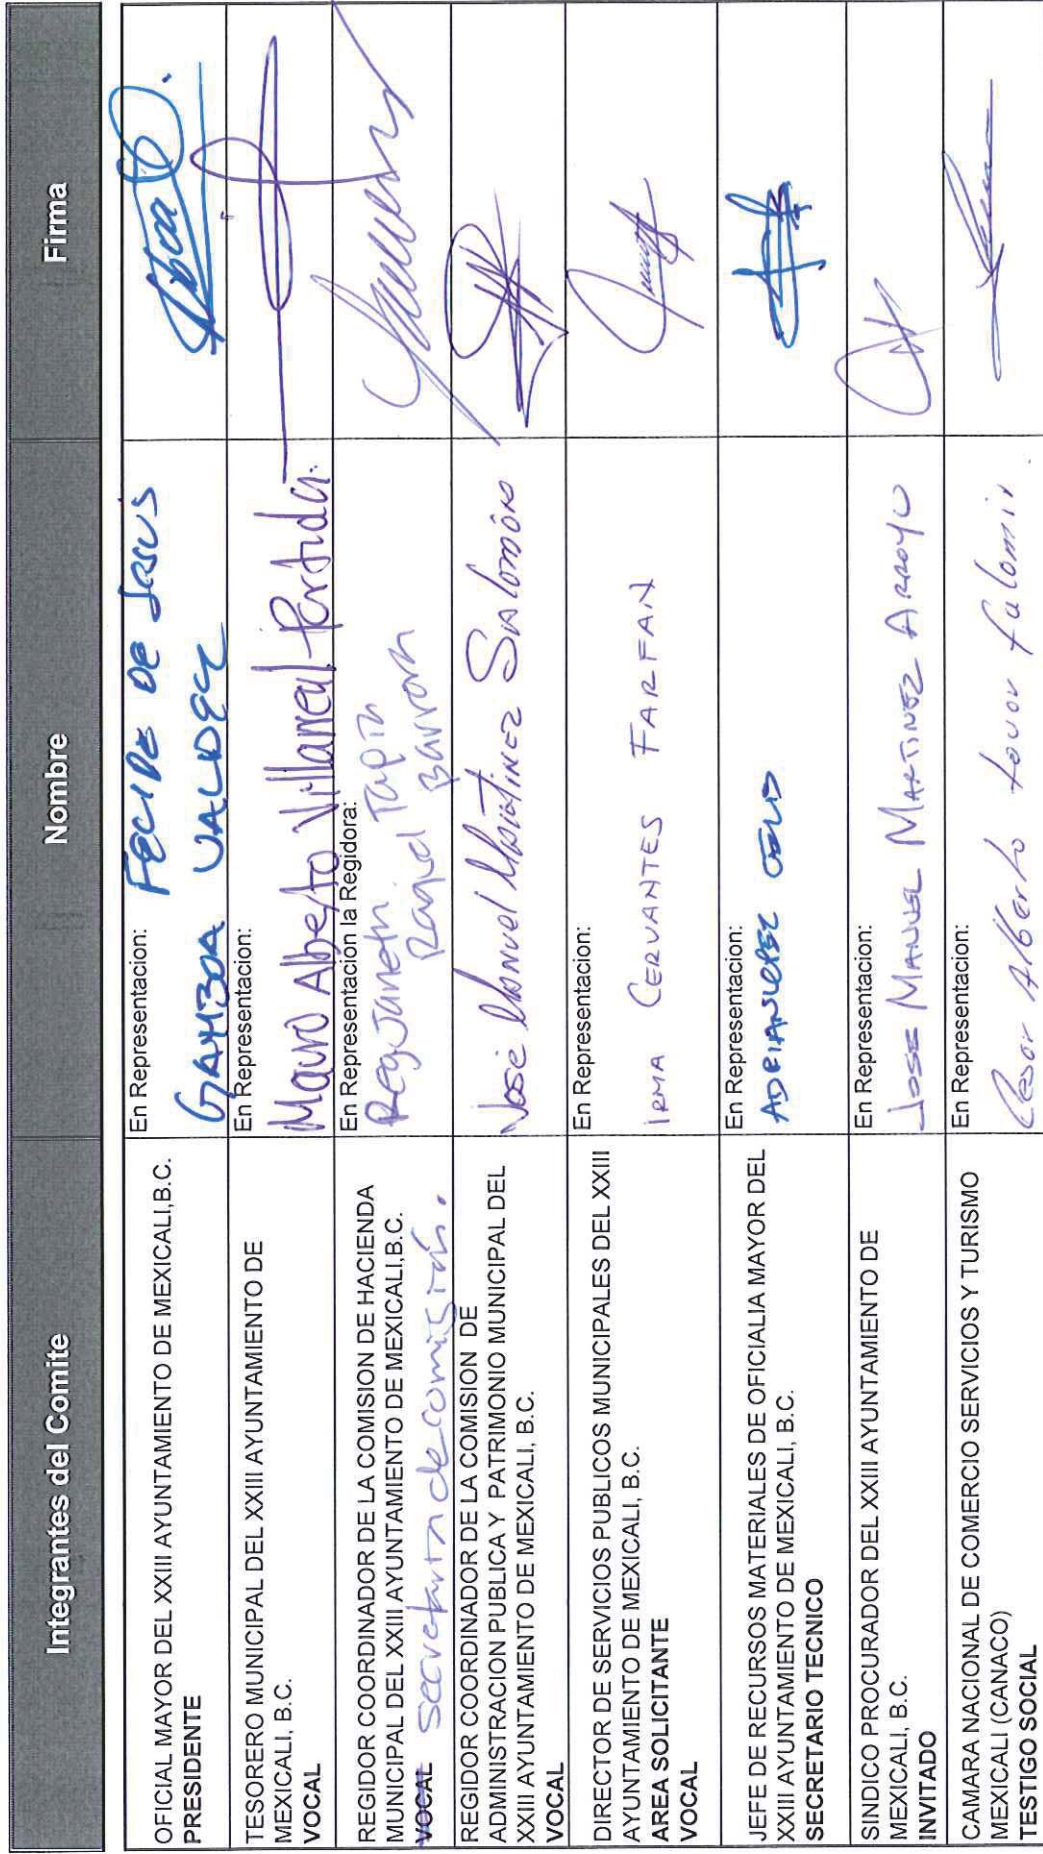 Integrantes del Comite
Nombre
Firma
OFICIAL MAYOR DEL XXIII AYUNTAMIENTO DE MEXICALI,B.C.
PRESIDENTE
En Representacion:
DE JESUS
GAMBOA VALDEZ
TESORERO MUNICIPAL DEL XXIII AYUNTAMIENTO DE
MEXICALI, B.C.
VOCAL
En Representacion:
Mauro Alberto Villarreal Partida.
REGIDOR COORDINADOR DE LA COMISION DE HACIENDA
MUNICIPAL DEL XXIII AYUNTAMIENTO DE MEXICALI,B.C.
VOCAL secretaria de comisión.
En Representación la Regidora:
Reg. Janeth Raquel Tapia
Barron
REGIDOR COORDINADOR DE LA COMISION DE
ADMINISTRACION PUBLICA Y PATRIMONIO MUNICIPAL DEL
XXIII AYUNTAMIENTO DE MEXICALI, B.C.
VOCAL
José Manuel Martinez Salomón
DIRECTOR DE SERVICIOS PUBLICOS MUNICIPALES DEL XXIII
AYUNTAMIENTO DE MEXICALI, B.C.
AREA SOLICITANTE
VOCAL
En Representacion:
IRMA CERVANTES FARFAN
JEFE DE RECURSOS MATERIALES DE OFICIALIA MAYOR DEL
XXIII AYUNTAMIENTO DE MEXICALI, B.C.
SECRETARIO TECNICO
En Representacion:
SINDICO PROCURADOR DEL XXIII AYUNTAMIENTO DE
MEXICALI, B.C.
INVITADO
En Representacion:
JOSE MANUEL MARTINEZ ARROYO
CAMARA NACIONAL DE COMERCIO SERVICIOS Y TURISMO
MEXICALI (CANACO)
TESTIGO SOCIAL
En Representacion:
Cesar Alberto tovar falomir.